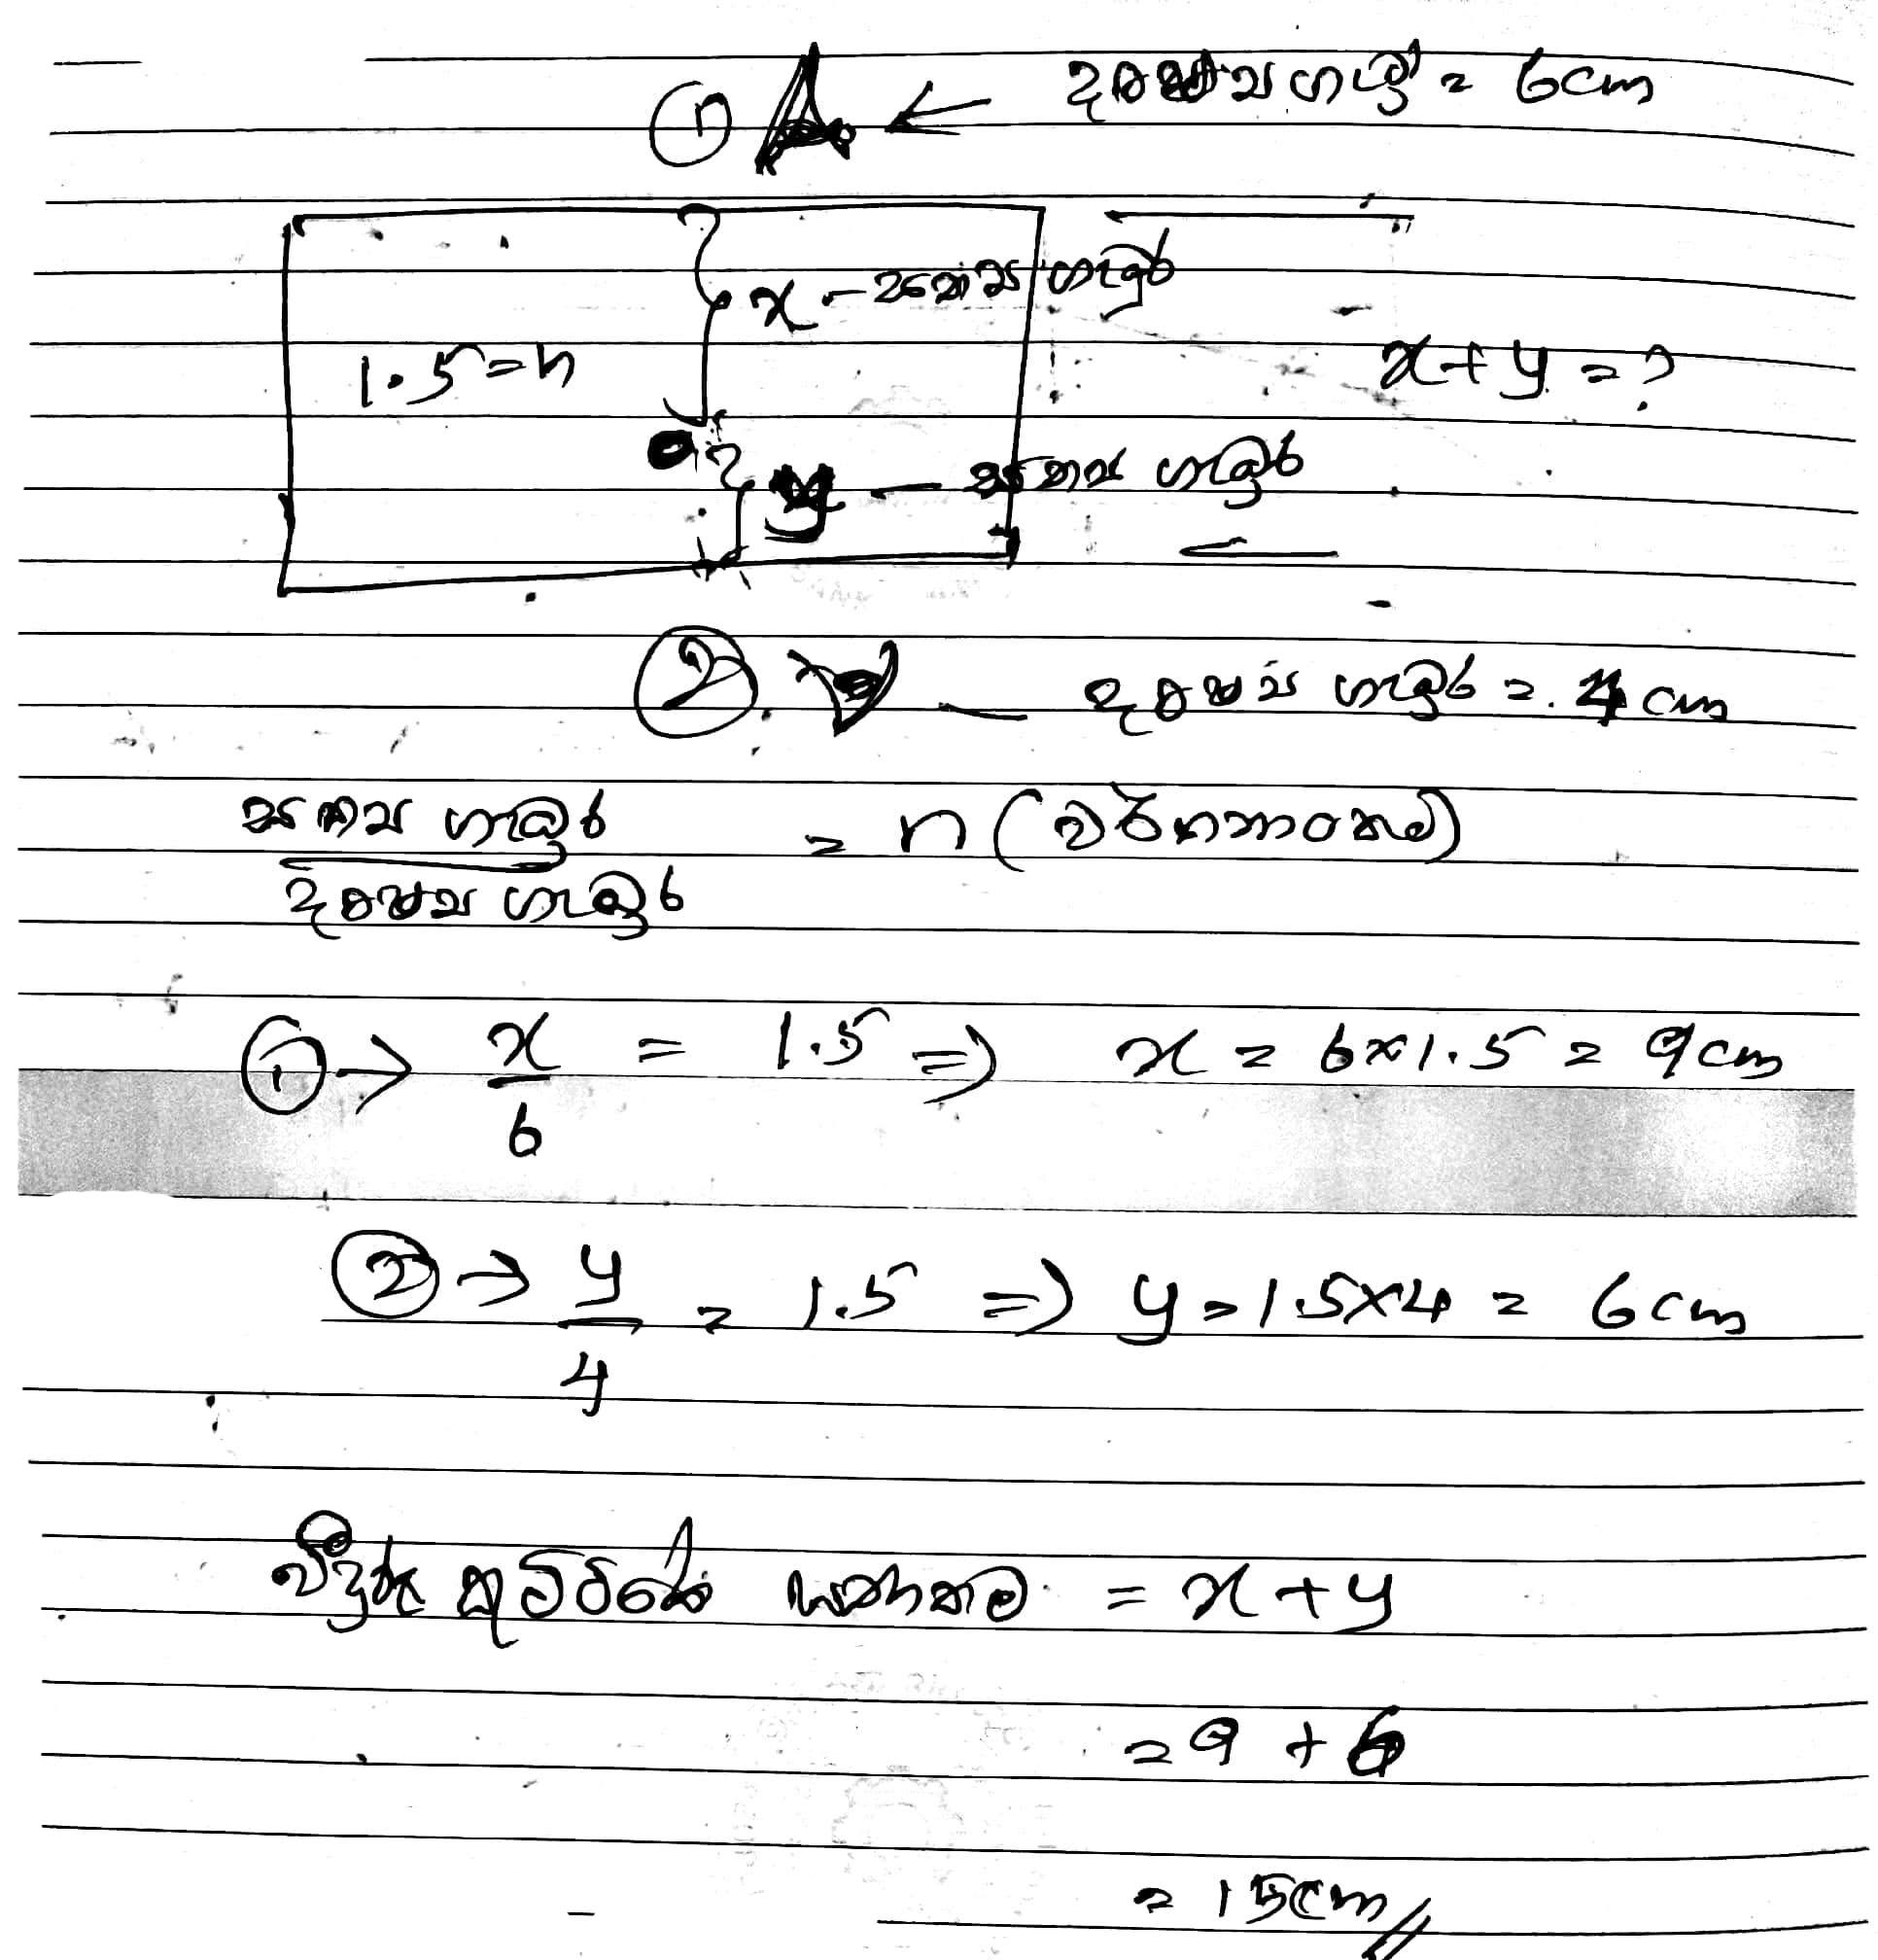 ① දෘෂ්‍ය ගැඹුර = 6cm
x - සත්‍ය ගැඹුර
1.5 = n
x + y = ?
y - සත්‍ය ගැඹුර
② - දෘෂ්‍ය ගැඹුර = 4 cm
සත්‍ය ගැඹුර = n (වර්තනාංකය)
දෘෂ්‍ය ගැඹුර
① → x/6 = 1.5 ⇒ x = 6×1.5 = 9cm
② → y/4 = 1.5 ⇒ y = 1.5×4 = 6cm
වීදුරු කුට්ටියේ ඝනකම = x + y
= 9 + 6
= 15cm//